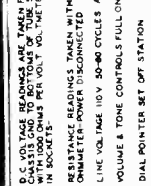 D.C VOLTAGE READINGS ARE TAKEN F
CHASSIS GND TO BOTTOMS OF TUBE S
WITH 1000 OHMS PER VOLT VOLTMETE
IN SOCKETS-
RESISTANCE READINGS TAKEN WITH
OHMMETER-POWER DISCONNECTED
LINE VOLTAGE 110V 50-60 CYCLES A
VOLUME & TONE CONTROLS FULL ON
DIAL POINTER SET OFF STATION